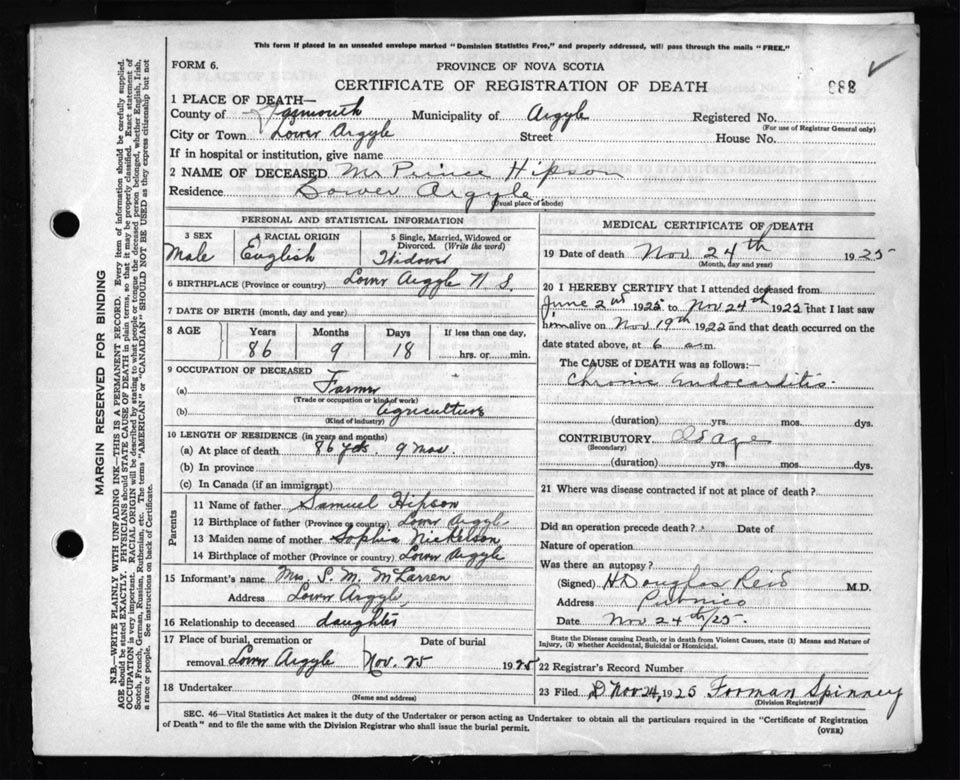 This form if placed in an unsealed envelope marked "Dominion Statistics Free," and properly addressed, will pass through the mails "FREE."
FORM 6.
PROVINCE OF NOVA SCOTIA
CERTIFICATE OF REGISTRATION OF DEATH
888
1 PLACE OF DEATH—
County of Yarmouth Municipality of Argyle Registered No.
(For use of Registrar General only)
City or Town Lower Argyle Street House No.
If in hospital or institution, give name
2 NAME OF DECEASED Mr Prince Hipson
Residence Lower Argyle
(Usual place of abode)
PERSONAL AND STATISTICAL INFORMATION
3 SEX
Male
4 RACIAL ORIGIN
English
5 Single, Married, Widowed or Divorced. (Write the word)
Widower
6 BIRTHPLACE (Province or country) Lower Argyle N S.
7 DATE OF BIRTH (month, day and year)
8 AGE Years Months Days If less than one day,
86 9 18 hrs. or min.
9 OCCUPATION OF DECEASED
(a) Farmer
(Trade or occupation or kind of work)
(b) Agriculture
(Kind of industry)
10 LENGTH OF RESIDENCE (in years and months)
(a) At place of death 86 yds. 9 mos.
(b) In province
(c) In Canada (if an immigrant)
Parents
11 Name of father Samuel Hipson
12 Birthplace of father (Province or country) Lower Argyle
13 Maiden name of mother Sophia Nickelson
14 Birthplace of mother (Province or country) Lower Argyle
15 Informant's name Mrs. S. M. McLarren
Address Lower Argyle,
16 Relationship to deceased daughter
17 Place of burial, cremation or Date of burial
removal Lower Argyle Nov. 25 1925
18 Undertaker
(Name and address)
MEDICAL CERTIFICATE OF DEATH
19 Date of death Nov 24th 1925
(Month, day and year)
20 I HEREBY CERTIFY that I attended deceased from
June 2nd 1925 to Nov 24th 1925 that I last saw
him alive on Nov 19th 1922 and that death occurred on the
date stated above, at 6 a.m.
The CAUSE of DEATH was as follows:—
Chronic endocarditis
(duration) yrs. mos. dys.
CONTRIBUTORY Old age
(Secondary)
(duration) yrs. mos. dys.
21 Where was disease contracted if not at place of death?
Did an operation precede death? Date of
Nature of operation
Was there an autopsy?
(Signed) H Douglas Reid M.D.
Address Pubnico
Date Nov 24th/25.
State the Disease causing Death, or in death from Violent Causes, state (1) Means and Nature of
Injury, (2) whether Accidental, Suicidal or Homicidal.
22 Registrar's Record Number
23 Filed Nov 24, 1925 Forman Spinney
(Division Registrar)
SEC. 46—Vital Statistics Act makes it the duty of the Undertaker or person acting as Undertaker to obtain all the particulars required in the "Certificate of Registration
of Death" and to file the same with the Division Registrar who shall issue the burial permit.
(OVER)
MARGIN RESERVED FOR BINDING
N.B.—WRITE PLAINLY WITH UNFADING INK—THIS IS A PERMANENT RECORD. Every item of information should be carefully supplied.
AGE should be stated EXACTLY. PHYSICIANS should STATE CAUSE OF DEATH in plain terms, so that it may be properly classified. Exact statement of
OCCUPATION is very important. RACIAL ORIGIN will be described by stating to what people or tongue the deceased person belonged, whether English, Irish,
Scotch, French, German, Russian, Ruthenian, etc. The terms "AMERICAN" or "CANADIAN" SHOULD NOT BE USED as they express citizenship but not
a race or people. See instructions on back of Certificate.